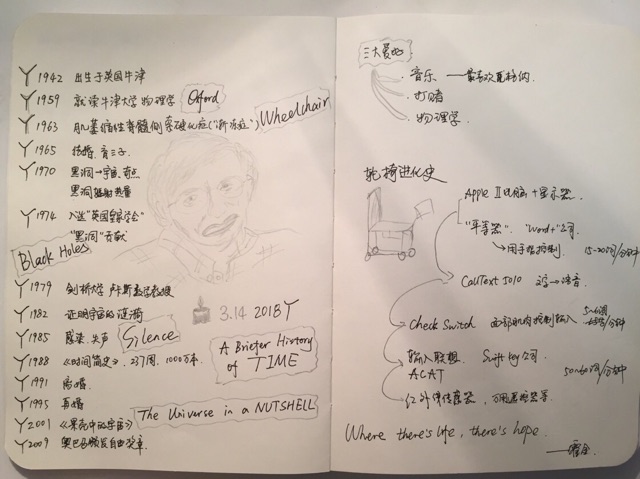 1942 出生于英国牛津
1959 就读牛津大学物理学 Oxford
1963 肌萎缩性脊髓侧索硬化症("渐冻症") Wheelchair
1965 结婚,育三子
1970 黑洞→宇宙奇点
黑洞辐射热量
1974 入选"英国皇家学会"
"黑洞"贡献
Black Holes
1979 剑桥大学 卢卡斯数学教授
1982 证明宇宙的
1985 感染,失声 Silence
1988 《时间简史》,237周,1000万本
1991 离婚
1995 再婚
The Universe in a NUTSHELL
2001 《果壳中的宇宙》
2009 奥巴马颁发自由奖章
3.14 2018
A Briefer History
of TIME
三大爱好
音乐 — 最喜欢瓦格纳
打赌
物理学
轮椅进化史
Apple II 电脑 + 显示器
"平等器" "Word+"公司
用手指控制 15~20词/分钟
CallText 5010 文字→语音
Check Switch 面部肌肉控制输入 词/分钟
输入联想 Swift key 公司
ACAT 50~60词/分钟
红外传感器,万用遥控器等
Where there's life, there's hope.
—霍金